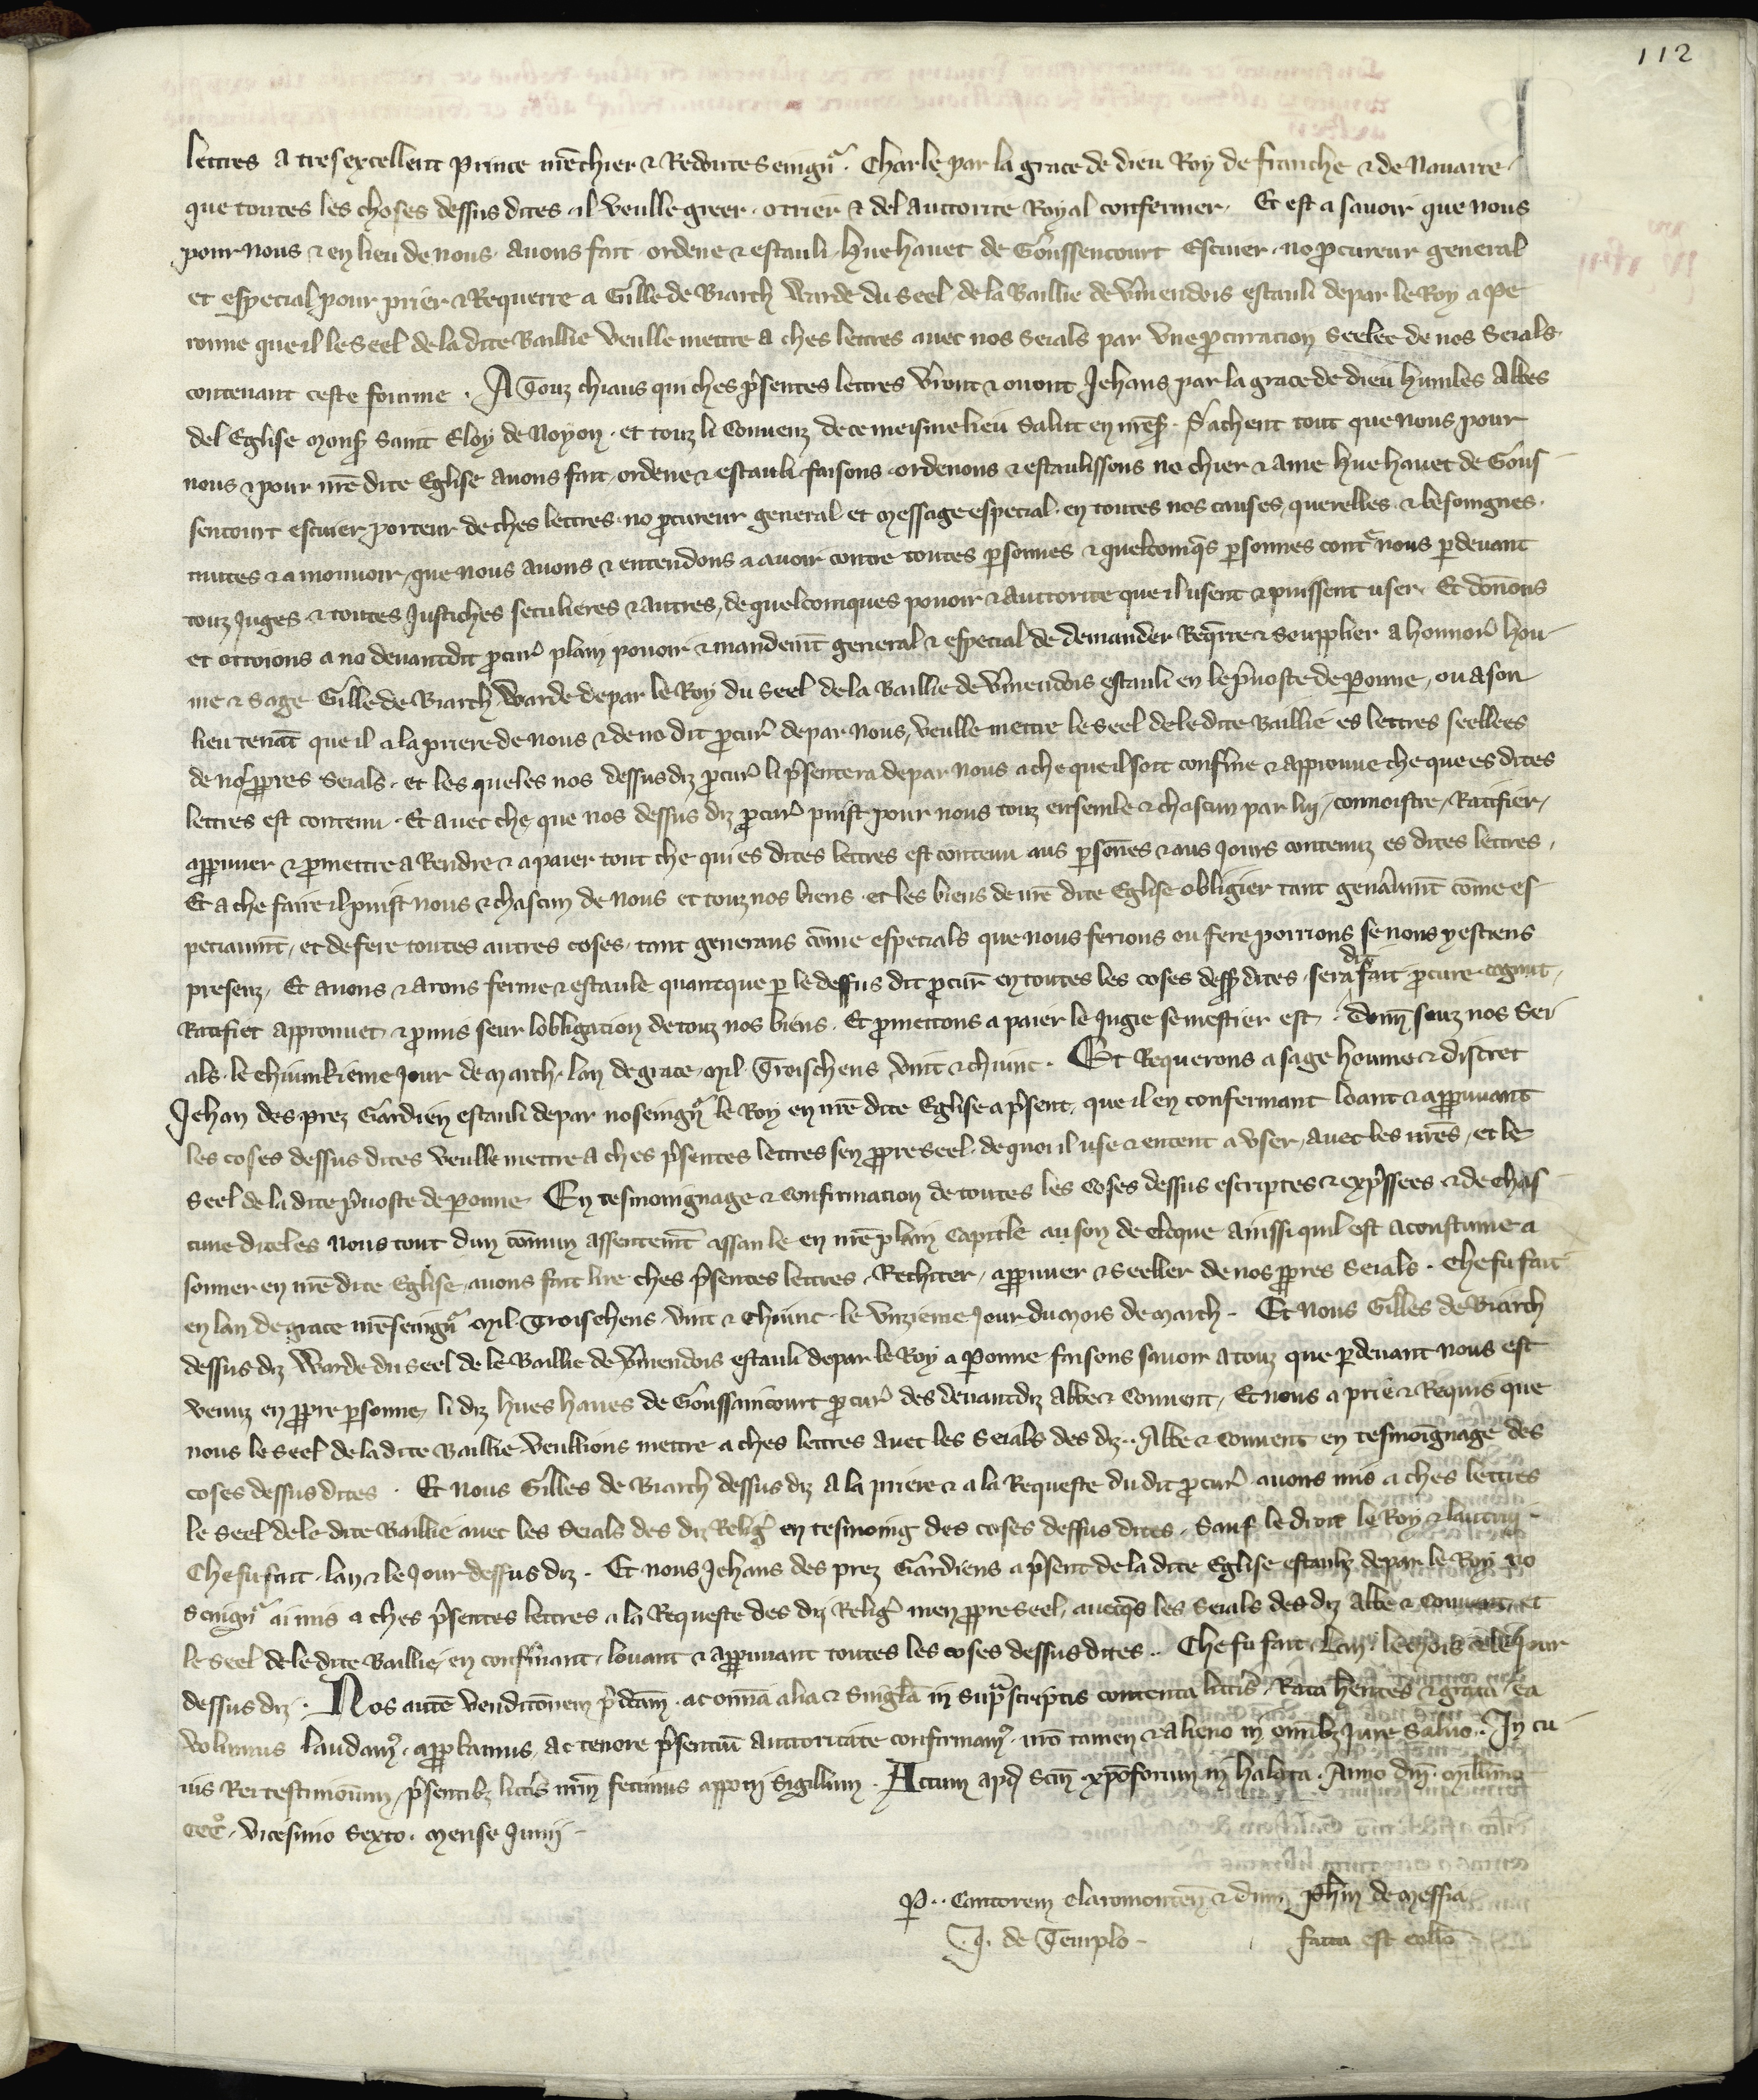 112
lettres a tresexcellent prince nr̃e chier & Redoute seingnr̃. Charle par la grace de dieu Roy de franche & de Nauarre
que toutes les choses dessus dites il veulle greer otrier & del auctorite Royal confermer. Et est a sauoir que nous
pour nous & en lieu de nous auons fait ordene & estauli Hue hauet de Goussencourt Escuier no ꝓcureur general
et especial pour prier & Requerre a Gille de Biarch Warde du Seel de la Baillie de Vm̃endois estauli depar le Roy a Pe
ronne que il le Seel de la dite Baillie veulle mettre a ches lettres auec nos Seials par vne ꝓcuracion Seelee de nos Seials
contenant ceste fourme. A Touz chiaus qui ches p̃sentes lettres v̾ront & oront Jehans par la grace de dieu humbles Abbes
del Eglise monsr̃ Saint Eloy de Noyon. et touz li Conuenz de ce meisme lieu Salut en nr̃e sr̃. Sachent tout que nous pour
nous & pour nr̃e dite Eglise auons fait ordene & estauli faisons ordenons & estaulissons no chier & ame Hue hauet de Gous
sencourt escuier porteur de ches lettres no ꝓcureur general et message especial en toutes nos causes querelles & besoingnes
mutes & a mouuoir, que nous auons & entendons a auoir contre toutes ꝑsonnes & quelconq̃s ꝑsonnes contr̃ nous ꝑdeuant
touz Juges & toutes Justiches seculieres & autres, de quelconques pouoir & auctorite que il usent & puissent user. Et donons
et ottroions a no deuantdit ꝓcur̃ plain pouoir & mandemt̃ general & especial de demander Requerre & soupplier a honnor̃ hou
me & Sage Gille de Biarch Warde depar le Roy du Seel de la Baillie de Vm̃endois estauli en le p̃uoste de Ꝑonne, ou a son
lieu tenãt que il a la priere de nous & de no dit ꝓcur̃ depar nous, veulle mettre le Seel de le dite Baillie es lettres seellees
de nos ꝓpres Seials. et les queles nos dessus diz ꝓcur̃ li p̃sentera depar nous a che que il soit conferme & approuue che que es dites
lettres est contenu. Et auec che que nos dessus diz ꝓcur̃ puist pour nous touz ensemble & chascun par lui, connoistre, Ratifier,
approuuer & ꝓmettre a Rendre & a paier tout che qui es dites lettres est contenu aus ꝑsoñes & aus Jours contenuz es dites lettres,
Et a che faire il puist nous & chascun de nous et touz nos biens et les biens de nr̃e dite Eglise obligier tant gen̾aumt̃ com̃e es
peciaumt̃, et de fere toutes autres coses, tant generaus com̃e especials que nous ferions ou fere porrions se nous y estiens
presenz, Et auons & arons ferme & estaule quantque ꝑ le dessus dit ꝓcur̃ en toutes les coses dess̃ dites sera dit fait ꝓcure cognut,
Ratifiet approuuet & ꝓmis seur lobligation de touz nos biens. Et ꝓmettons a paier le Jugie se mestier est. Donn̄ souz nos Sei
als le chiunkieme Jour de march lan de grace mil Troischens vint & chiunc. Et Requerons a sage houme & discret
Jehan des prez Gardien estauli depar no seingnr̃ le Roy en nr̃e dite Eglise a p̃sent, que il en confermant loant & approuuant
les coses dessus dites veulle mettre a ches p̃sentes lettres sen ꝓpre seel de quoi il use & entent a user, auec les nr̃es, et le
seel de la dite p̃uoste de Ꝑonne En tesmoingnage & confirmation de toutes les coses dessus escriptes & exp̃ssees & de chas
cune diceles nous tout dun com̃un assentemt̃ assanle en nr̃e plain Capitle au son de cloque ainssi quil est acoustume a
sonner en nr̃e dite Eglise auons fait lire ches p̃sentes lettres, Rechiter, approuuer & seeller de nos ꝓpres Seials. Che fu fait
en lan de grace nr̃e seingnr̃ Mil Troischens vint & chiunc le vnzieme Jour du mois de March. Et nous Gilles de Biarch
dessus diz Warde du Seel de le Baillie de Vm̃endois estauli depar le Roy a Ꝑonne faisons sauoir a touz que ꝑdeuant nous est
venuz en ꝓpre ꝑsonne, li diz Hues Haues de Goussaincourt ꝓcur̃ des deuantdiz abbe & Conuent, Et nous a prie & Requis que
nous le Seel de la dite Baillie veullions mettre a ches lettres auec les Seials des diz. Abbe & Conuent en tesmoingnage des
coses dessus dites. Et nous Gilles de Biarch dessus diz a la priere & a la Requeste du dit ꝓcur̃ auons mis a ches lettres
le Seel de le dite Baillie auec les Seials des diz Relig̃ en tesmoing des coses dessus dites, sauf le droit le Roy & lautrui
Che fu fait lan & le Jour dessus diz. Et nous Jehans des prez Gardiens a p̃sent de la dite Eglise estauli depar le Roy no
seingnr̃ ai mis a ches p̃sentes lettres a la Requeste des diz Relig̃ men ꝓpre seel, auecq̃s les Seials des diz Abbe & Conuent et
le seel de le dite Baillie, en confermant louant & approuuant toutes les coses dessus dites. Che fu fait Lan le mois & le Jour
dessus diz. Nos autẽ venditionem p̃dc̃am ac om̃ia alia & singl̃a in sup̃scriptis contenta litt̾is Rata hentes & grata ea
volumus laudam̾ approbamus ac tenore p̃sentium auctoritate confirmam̾ nr̃o tamen & alieno in omnibꝫ Jure Saluo. In cu
ius Rei testimonium, p̃sentibꝫ litt̾is nr̃m fecimus apponi Sigillum. Actum apd̃ Scm̃ Xp̃oforum in halata. Anno dñi millimo
CCCo. vicesimo sexto. mense Junii
Ꝑ.. Cantorem claromonten̄ & dnm̃ Ph̃m de Messia
J. de Templo
facta est coll̃o